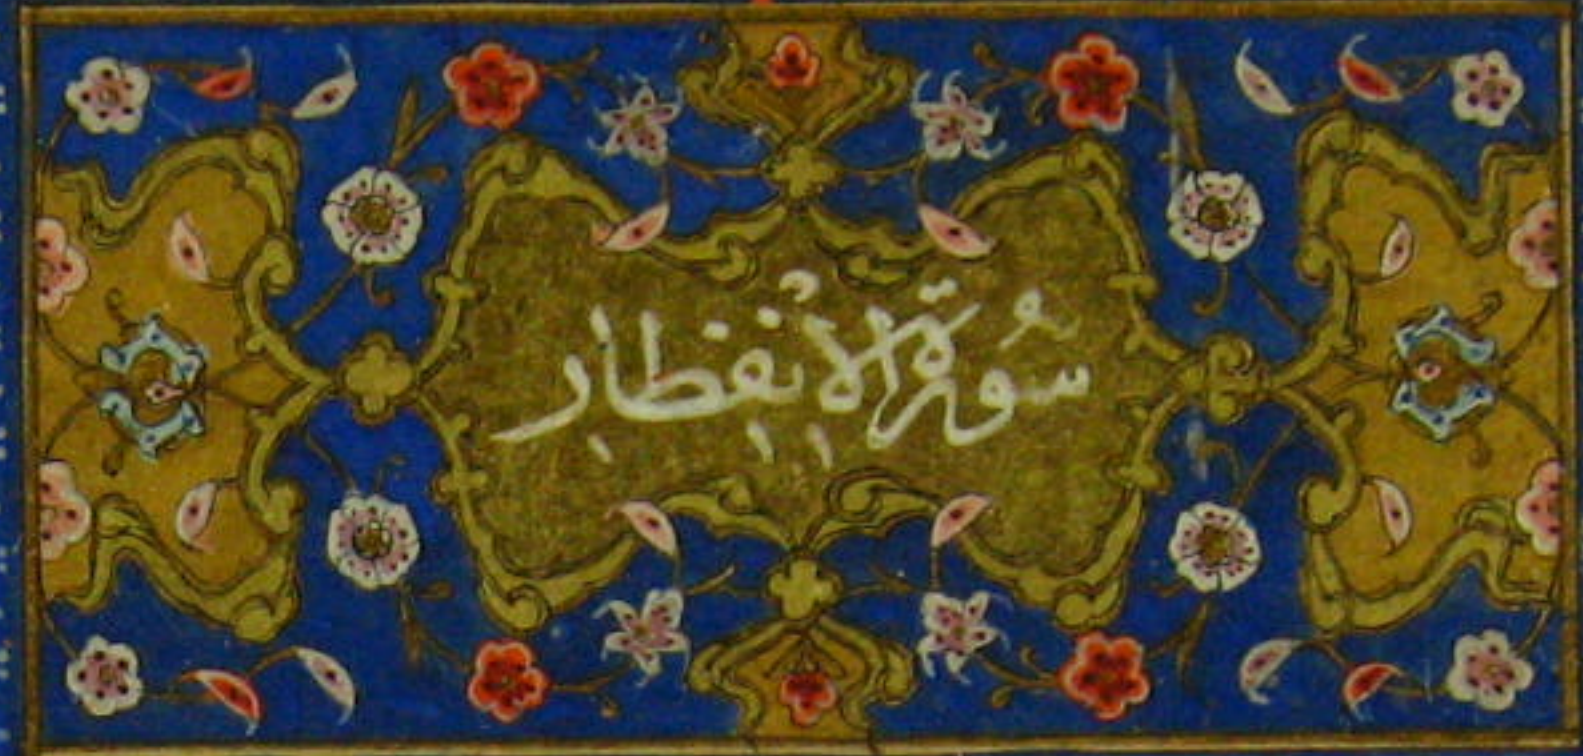 سُورَةُ الْاِنْفِطَارِ